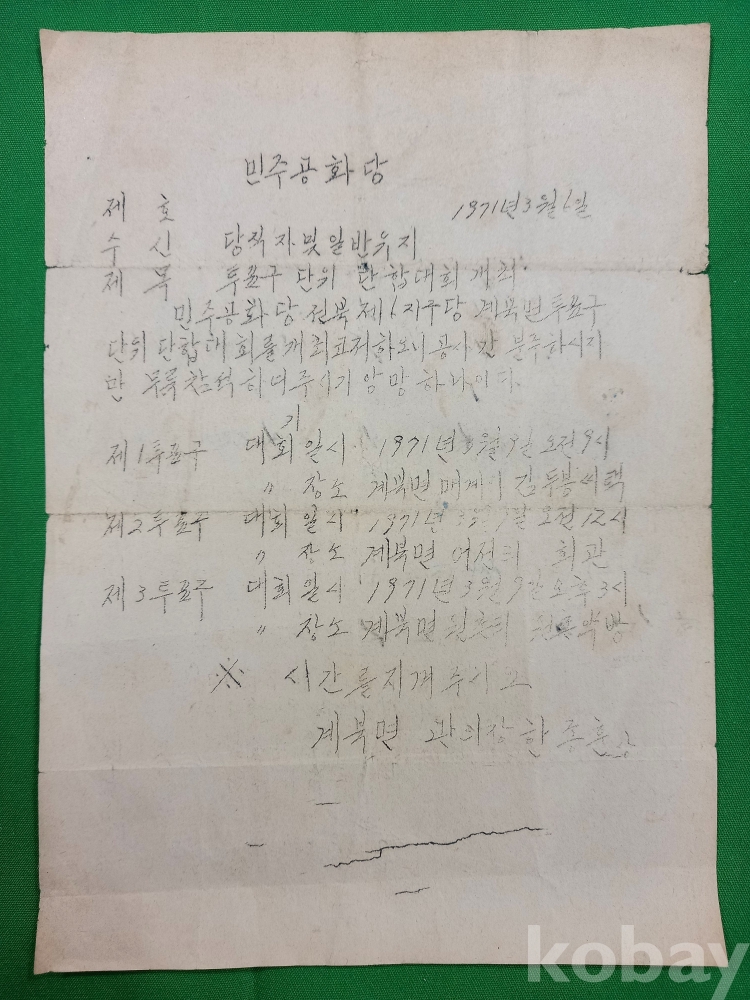 민주공화당
제 호 1971년 3월 6일
수 신 당직자 및 일반유지
제 목 투표구 단위 단합대회 개최
민주공화당 전북 제6지구당 계북면 투표구
단위 단합대회를 개최코저 하오니 공사간 분주하시지
만 부록 참석하여 주시기 앙망하나이다.
기
제1투표구 대회일시 1971년 3월 9일 오전 9시
〃 장소 계북면 매계리 김두봉씨댁
제2투표구 대회일시 1971년 3월 9일 오전 12시
〃 장소 계북면 어전리 회관
제3투표구 대회일시 1971년 3월 9일 오후 3시
〃 장소 계북면 원촌리 약방
※ 시간를 지켜주시고
계북면 관리장 한종훈
kobay